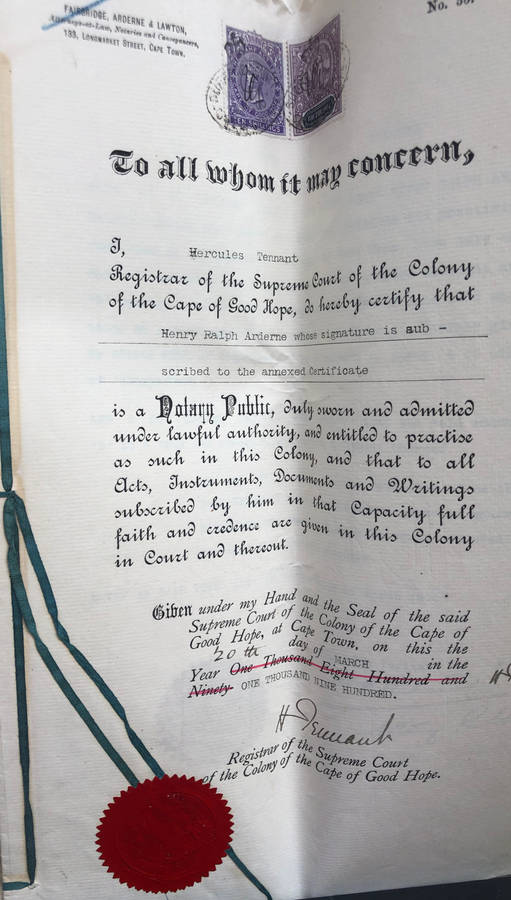 FAIRBRIDGE, ARDERNE & LAWTON,
Attorneys-at-Law, Notaries and Conveyancers,
133, LONGMARKET STREET, CAPE TOWN.
No.
TEN SHILLINGS
To all whom it may concern,
I, Hercules Tennant
Registrar of the Supreme Court of the Colony
of the Cape of Good Hope, do hereby certify that
Henry Ralph Arderne whose signature is sub -
scribed to the annexed Certificate
is a Notary Public, duly sworn and admitted
under lawful authority, and entitled to practise
as such in this Colony, and that to all
Acts, Instruments, Documents and Writings
subscribed by him in that Capacity full
faith and credence are given in this Colony
in Court and thereout.
Given under my Hand and the Seal of the said
Supreme Court of the Colony of the Cape of
Good Hope, at Cape Town, on this the
20th day of MARCH in the
Year One Thousand Eight Hundred and
Ninety- ONE THOUSAND NINE HUNDRED.
H Tennant
Registrar of the Supreme Court
of the Colony of the Cape of Good Hope.